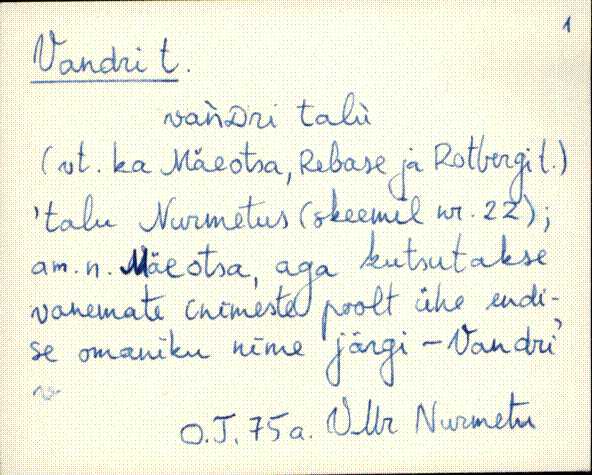 1
Vandri t.
vaǹDri talù
(vt. ka Mäeotsa, Rebase ja Rotbergi t.)
'talu Nurmetus (skeemil nr. 22);
am. n. Mäeotsa, aga kutsutakse
vanemate inimeste poolt ühe endi-
se omaniku nime järgi – Vandri'
O.J. 75 a. VMr Nurmetu